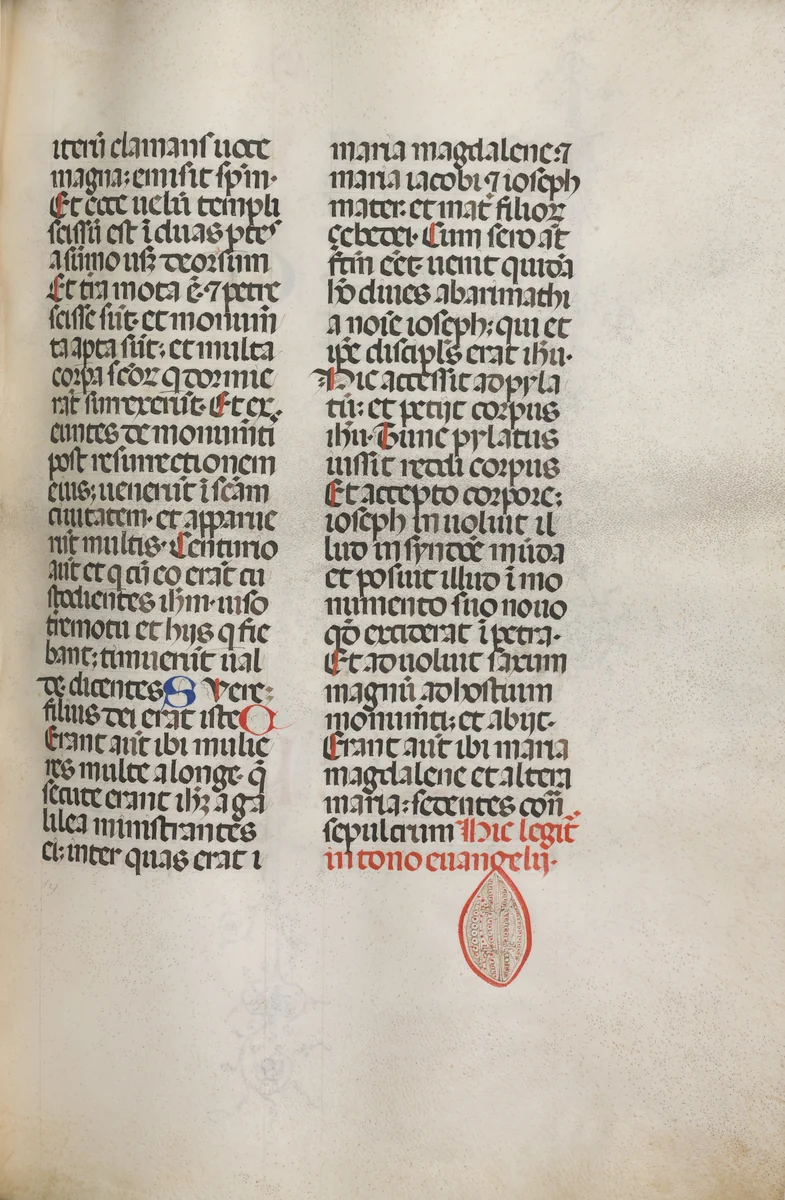 iterū clamans uoce
magna: emisit sp̄m·
Et ecce uelū templi
scissū est ī duas ptes
a sūmo usq deorsum
Et tr̄a mota ē· ⁊ petre
scisse sūt· et monum̄
ta apta sūt; et multa
corpa scōꝝ q dormie
rāt surrexerūt· Et ex
euntes de monum̄ti
post resurrectionem
eius; uenerūt ī scām
ciuitatem· et apparue
rūt multis· Centurio
aūt et q cū eo erāt cu
stodientes ih̄m· uiso
tremotu et hijs q fie
bant; timuerūt ual
de· dicentes S Vere
filius dei erat iste C
Erant aūt ibi mulie
res multe a longe· q̄
secute erant ih̄ꝫ a ga
lilea ministrantes
ei: inter quas erat i
maria magdalene: ⁊
maria iacobi ⁊ ioseph
mater: et mat̄ filioꝝ
çebedei· Cum sero āt
fc̄m eēt· uenit quidā
hō diues abarimathi
a noīe ioseph; qui et
ip̄e discipls̄ erat ih̄u·
Hic accessit ad pyla
tū: et petijt corpus
ih̄u· Tunc pylatus
iussit reddi corpus
Et accepto corpore;
ioseph inuoluit il
lud in syndōe mūda
et posuit illud ī mo
numento suo nouo
qđ exciderat ī petra·
Et aduoluit saxum
magnū ad hostium
monum̄ti; et abijt·
Erant aūt ibi maria
magdalene et altera
maria: sedentes con̄
sepulcrum Hic legit̄
in tono euangelij·